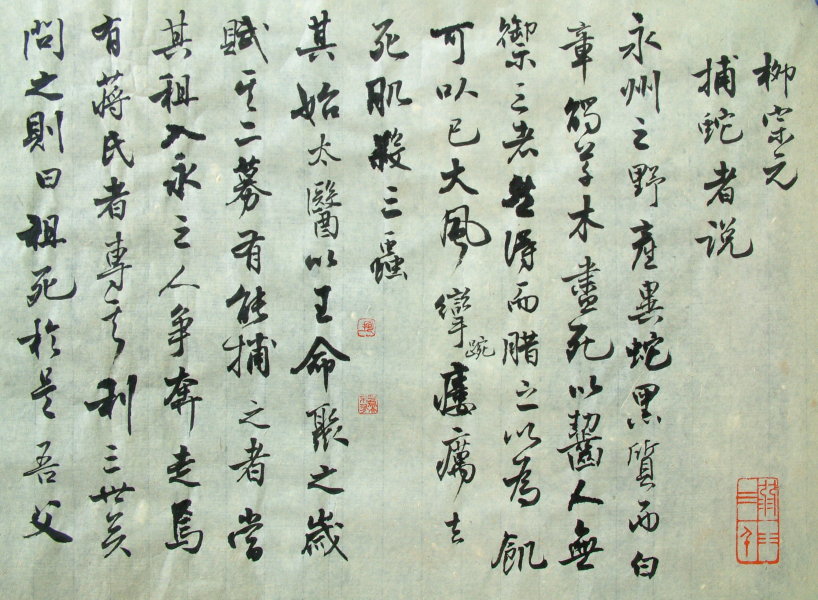 柳宗元
捕蛇者说
永州之野產異蛇黑質而白
章觸草木盡死以齧人無
禦之者然得而腊之以為飢
可以已大風攣踠瘻癘去
死肌殺三蟲
其始太醫以王命聚之歲
賦其二募有能捕之者當
其租入永之人争奔走焉
有蔣氏者專其利三世矣
問之則曰祖死於是吾父